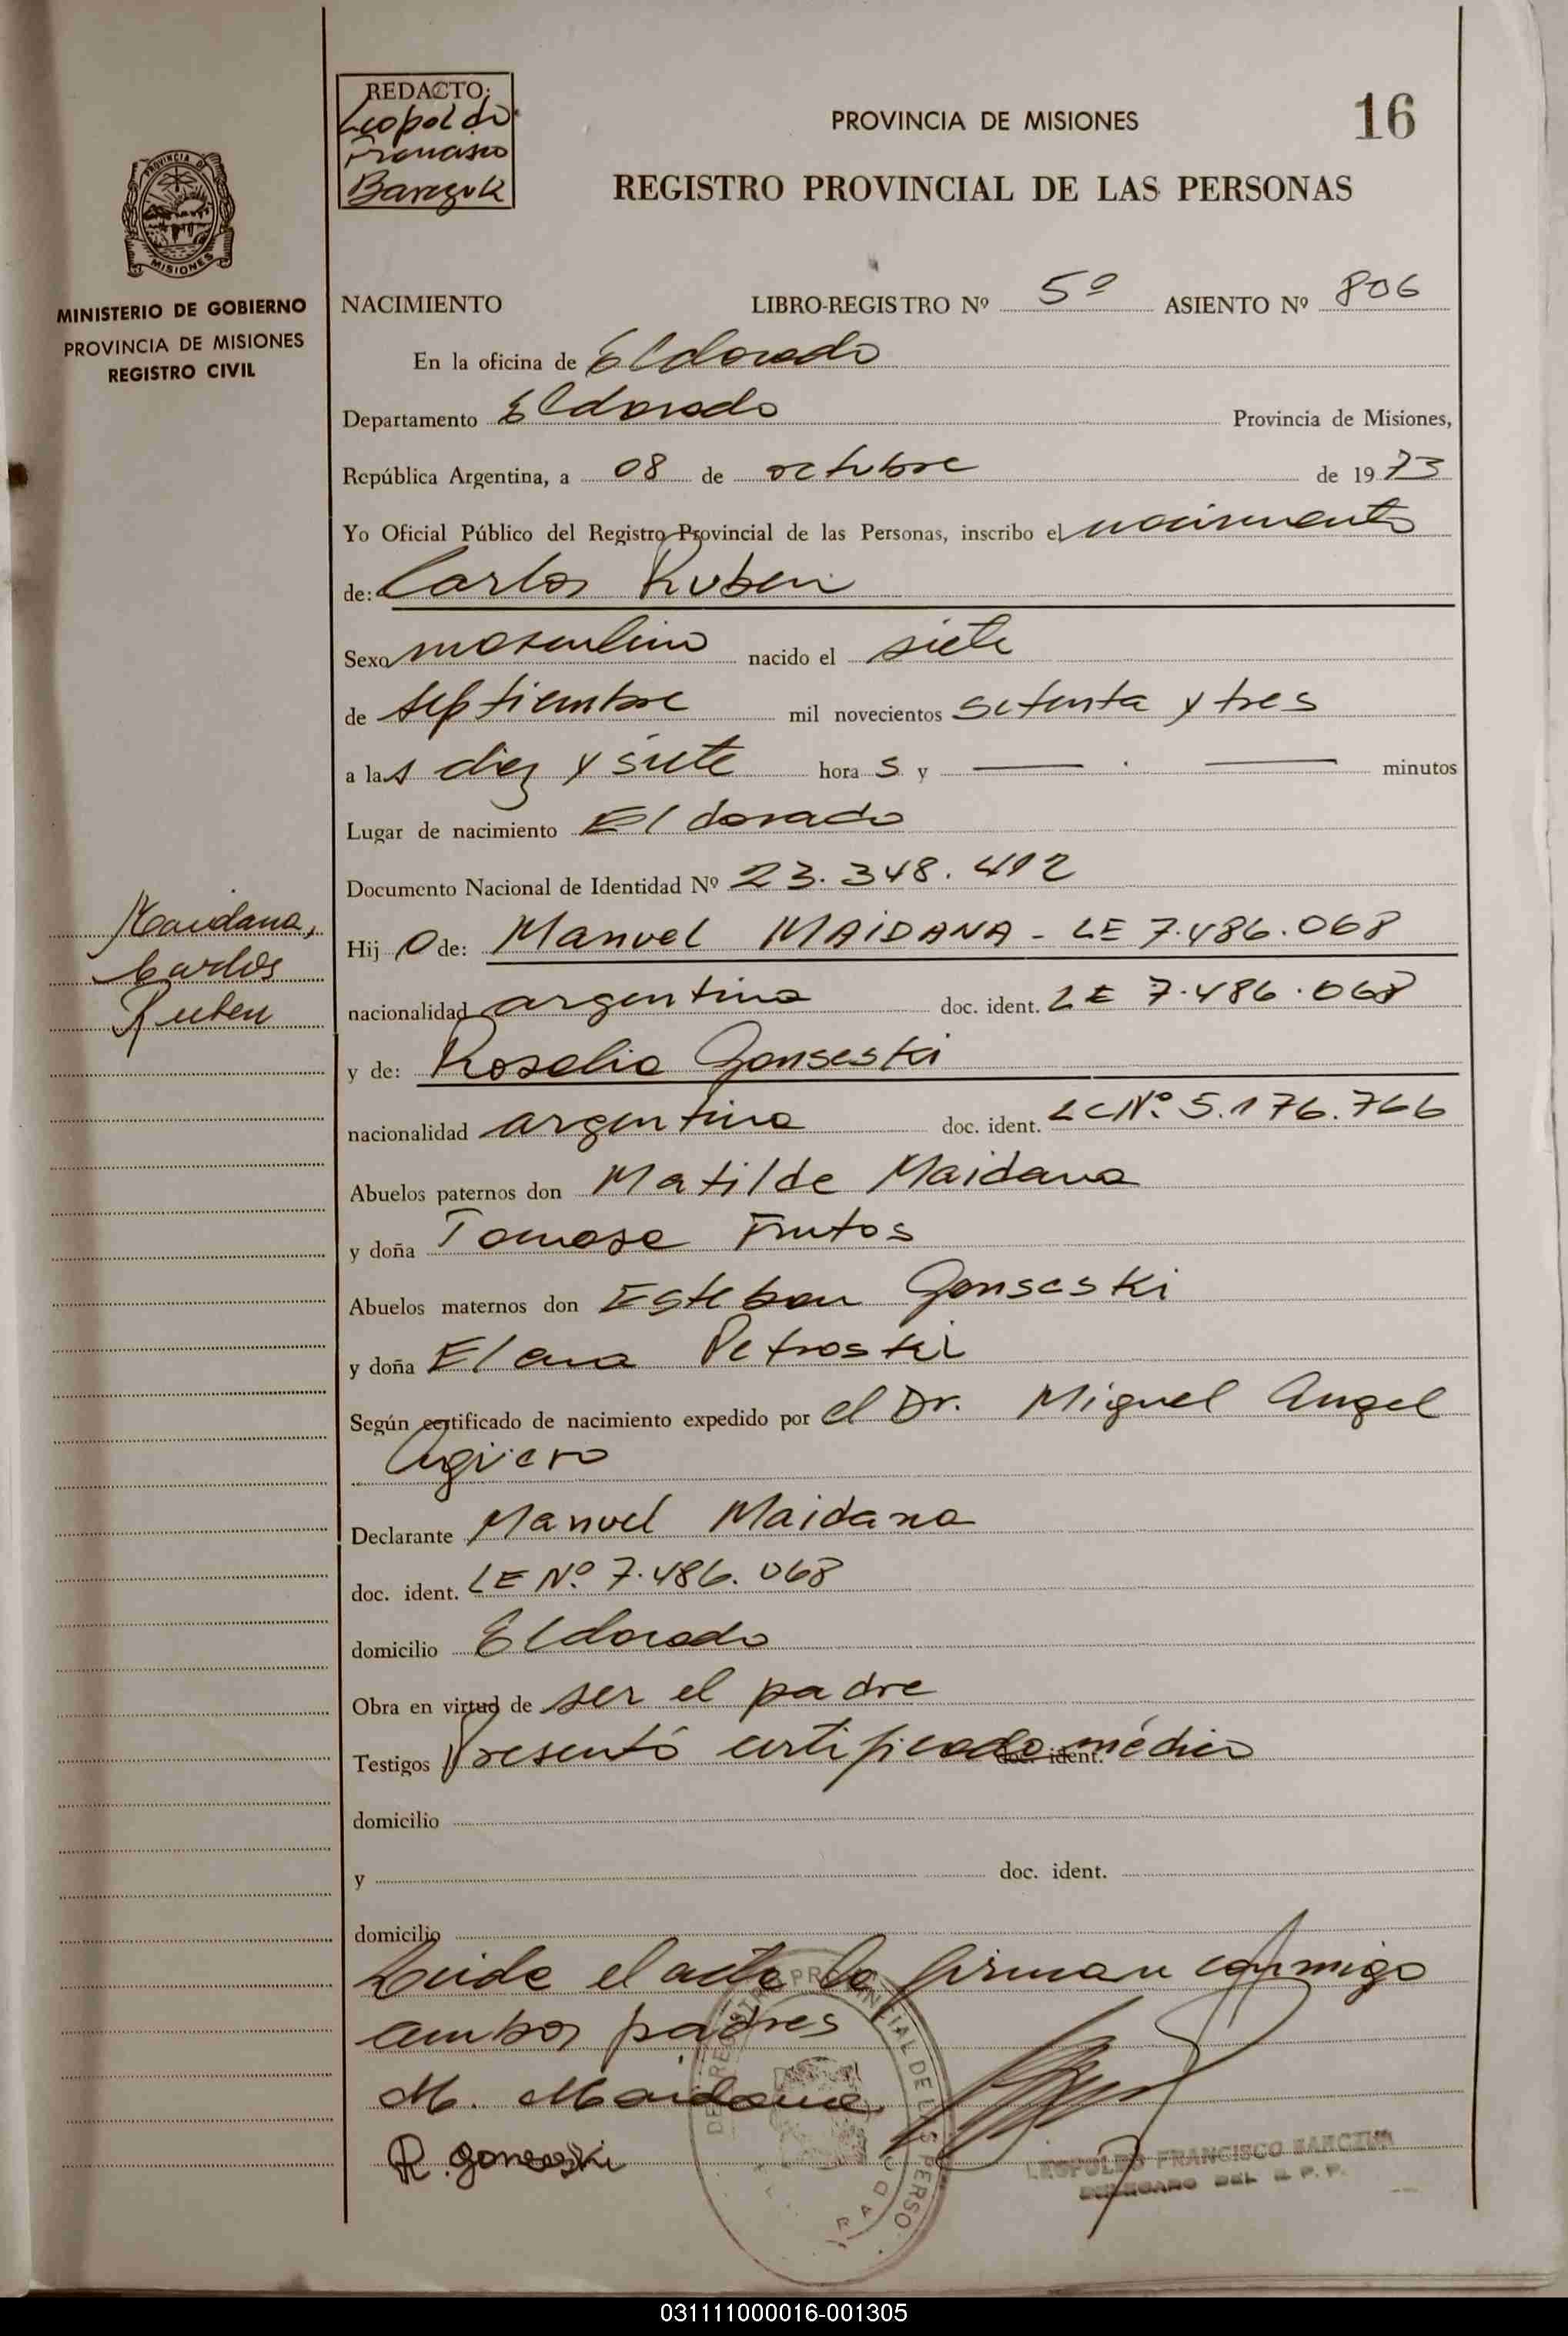 REDACTO:
Leopoldo
Francisco
Barczuk
PROVINCIA DE MISIONES
16
REGISTRO PROVINCIAL DE LAS PERSONAS
PROVINCIA DE
MISIONES
MINISTERIO DE GOBIERNO
PROVINCIA DE MISIONES
REGISTRO CIVIL
NACIMIENTO LIBRO-REGISTRO Nº 5º ASIENTO Nº 806
En la oficina de Eldorado
Departamento Eldorado Provincia de Misiones,
República Argentina, a 08 de octubre de 1973
Yo Oficial Público del Registro Provincial de las Personas, inscribo el nacimiento
de: Carlos Ruben
Sexo masculino nacido el siete
de septiembre mil novecientos setenta y tres
a las diez y siete horas y minutos
Lugar de nacimiento Eldorado
Documento Nacional de Identidad Nº 23.348.412
Maidana,
Carlos
Ruben
Hijo de: Manuel MAIDANA - LE 7.486.068
nacionalidad argentina doc. ident. LE 7.486.068
y de: Rosalia Gonseski
nacionalidad argentina doc. ident. LC Nº. 5.176.766
Abuelos paternos don Matilde Maidana
y doña Tomasa Frutos
Abuelos maternos don Esteban Gonseski
y doña Elena Petroski
Según certificado de nacimiento expedido por el Dr. Miguel Angel
Agüero
Declarante Manuel Maidana
doc. ident. LE Nº. 7.486.068
domicilio Eldorado
Obra en virtud de ser el padre
Testigos Presentó certificado médico doc. ident.
domicilio
y doc. ident.
domicilio
Leida el acta la firman conmigo
ambos padres
M. Maidana
R. gonseski
LEOPOLDO FRANCISCO BARCZUK
DELEGADO DEL R. P. P.
031111000016-001305